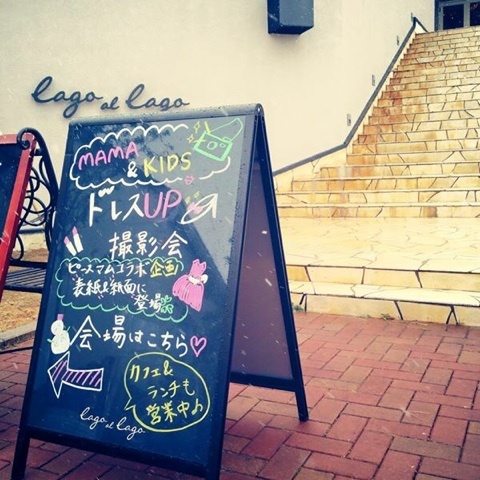 lago al lago
MAMA
& KIDS
ドレスUP
撮影会
ピースマムコラボ企画
表紙&紙面に
登場
会場はこちら♡
カフェ&
ランチも
営業中♪
lago al lago